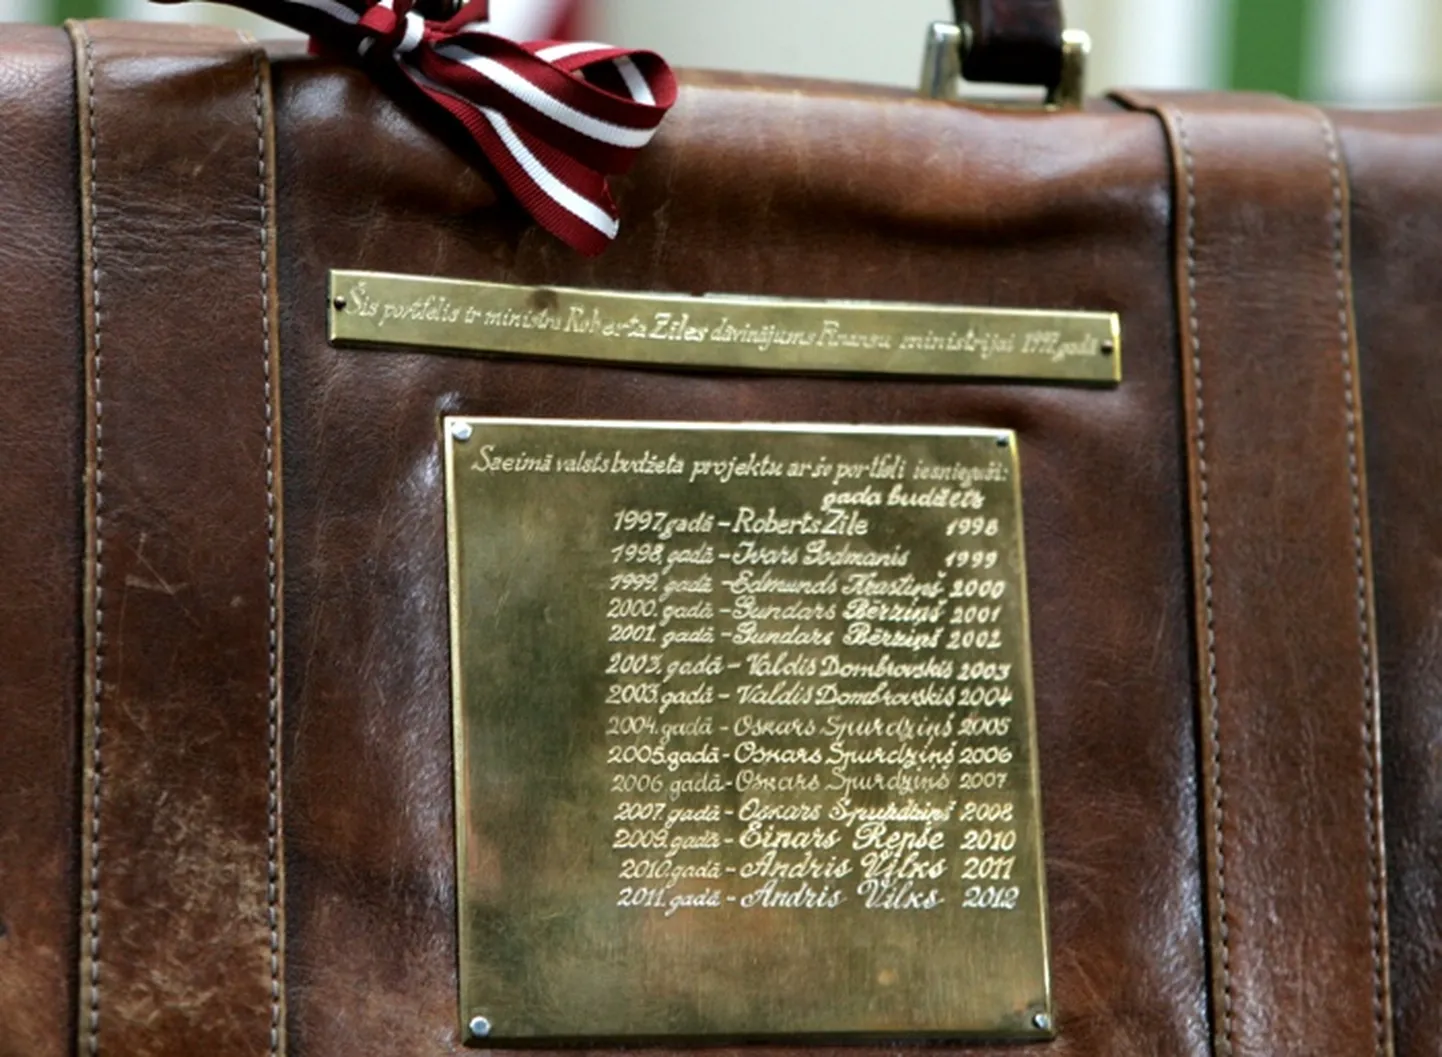 Šis portfelis ir ministra Roberta Zīles dāvinājums Finansu ministrijai 1997. gadā
Saeimā valsts budžeta projektu ar šo portfeli iesnieguši:
gada budžets
1997. gadā - Roberts Zīle 1998
1998. gadā - Ivars Godmanis 1999
1999. gadā - Edmunds Krastiņš 2000
2000. gadā - Gundars Bērziņš 2001
2001. gadā - Gundars Bērziņš 2002
2003. gadā - Valdis Dombrovskis 2003
2003. gadā - Valdis Dombrovskis 2004
2004. gadā - Oskars Spurdziņš 2005
2005. gadā - Oskars Spurdziņš 2006
2006 gadā - Oskars Spurdziņš 2007
2007. gadā - Oskars Spurdziņš 2008
2009. gadā - Einars Repše 2010
2010. gadā - Andris Vilks 2011
2011. gadā - Andris Vilks 2012